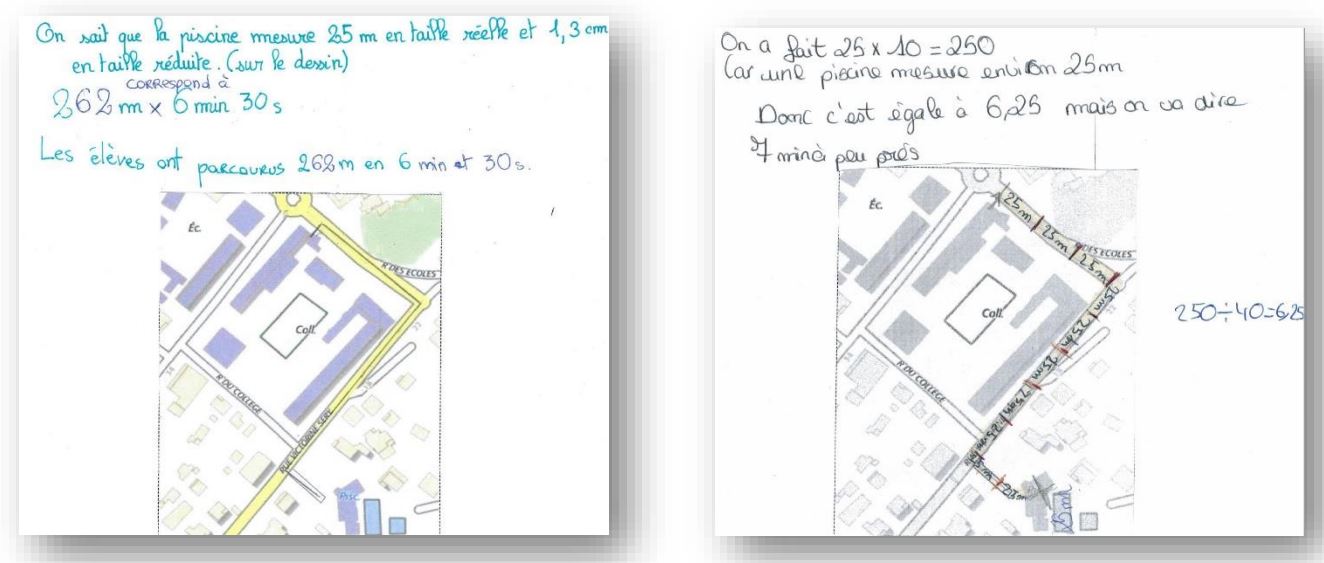 On sait que la piscine mesure 25 m en taille réelle et 1,3 cm
en taille réduite. (sur le dessin)
correspond à
262 m × 6 min 30 s
Les élèves ont parcourus 262 m en 6 min et 30 s.
Éc.
R DES ECOLES
Coll.
R DU COLLEGE
RUE VICTORINE SERE
Pisc
On a fait 25 x 10 = 250
Car une piscine mesure environ 25m
Donc c'est égale à 6,25 mais on va dire
7 min à peu près
Éc.
25 m
25 m
DES ECOLES
25 m
25 m
25 m
Coll.
25 m
25 m
25 m
R DU COLLEGE
25 m
25 m
25 m
250÷40=6,25